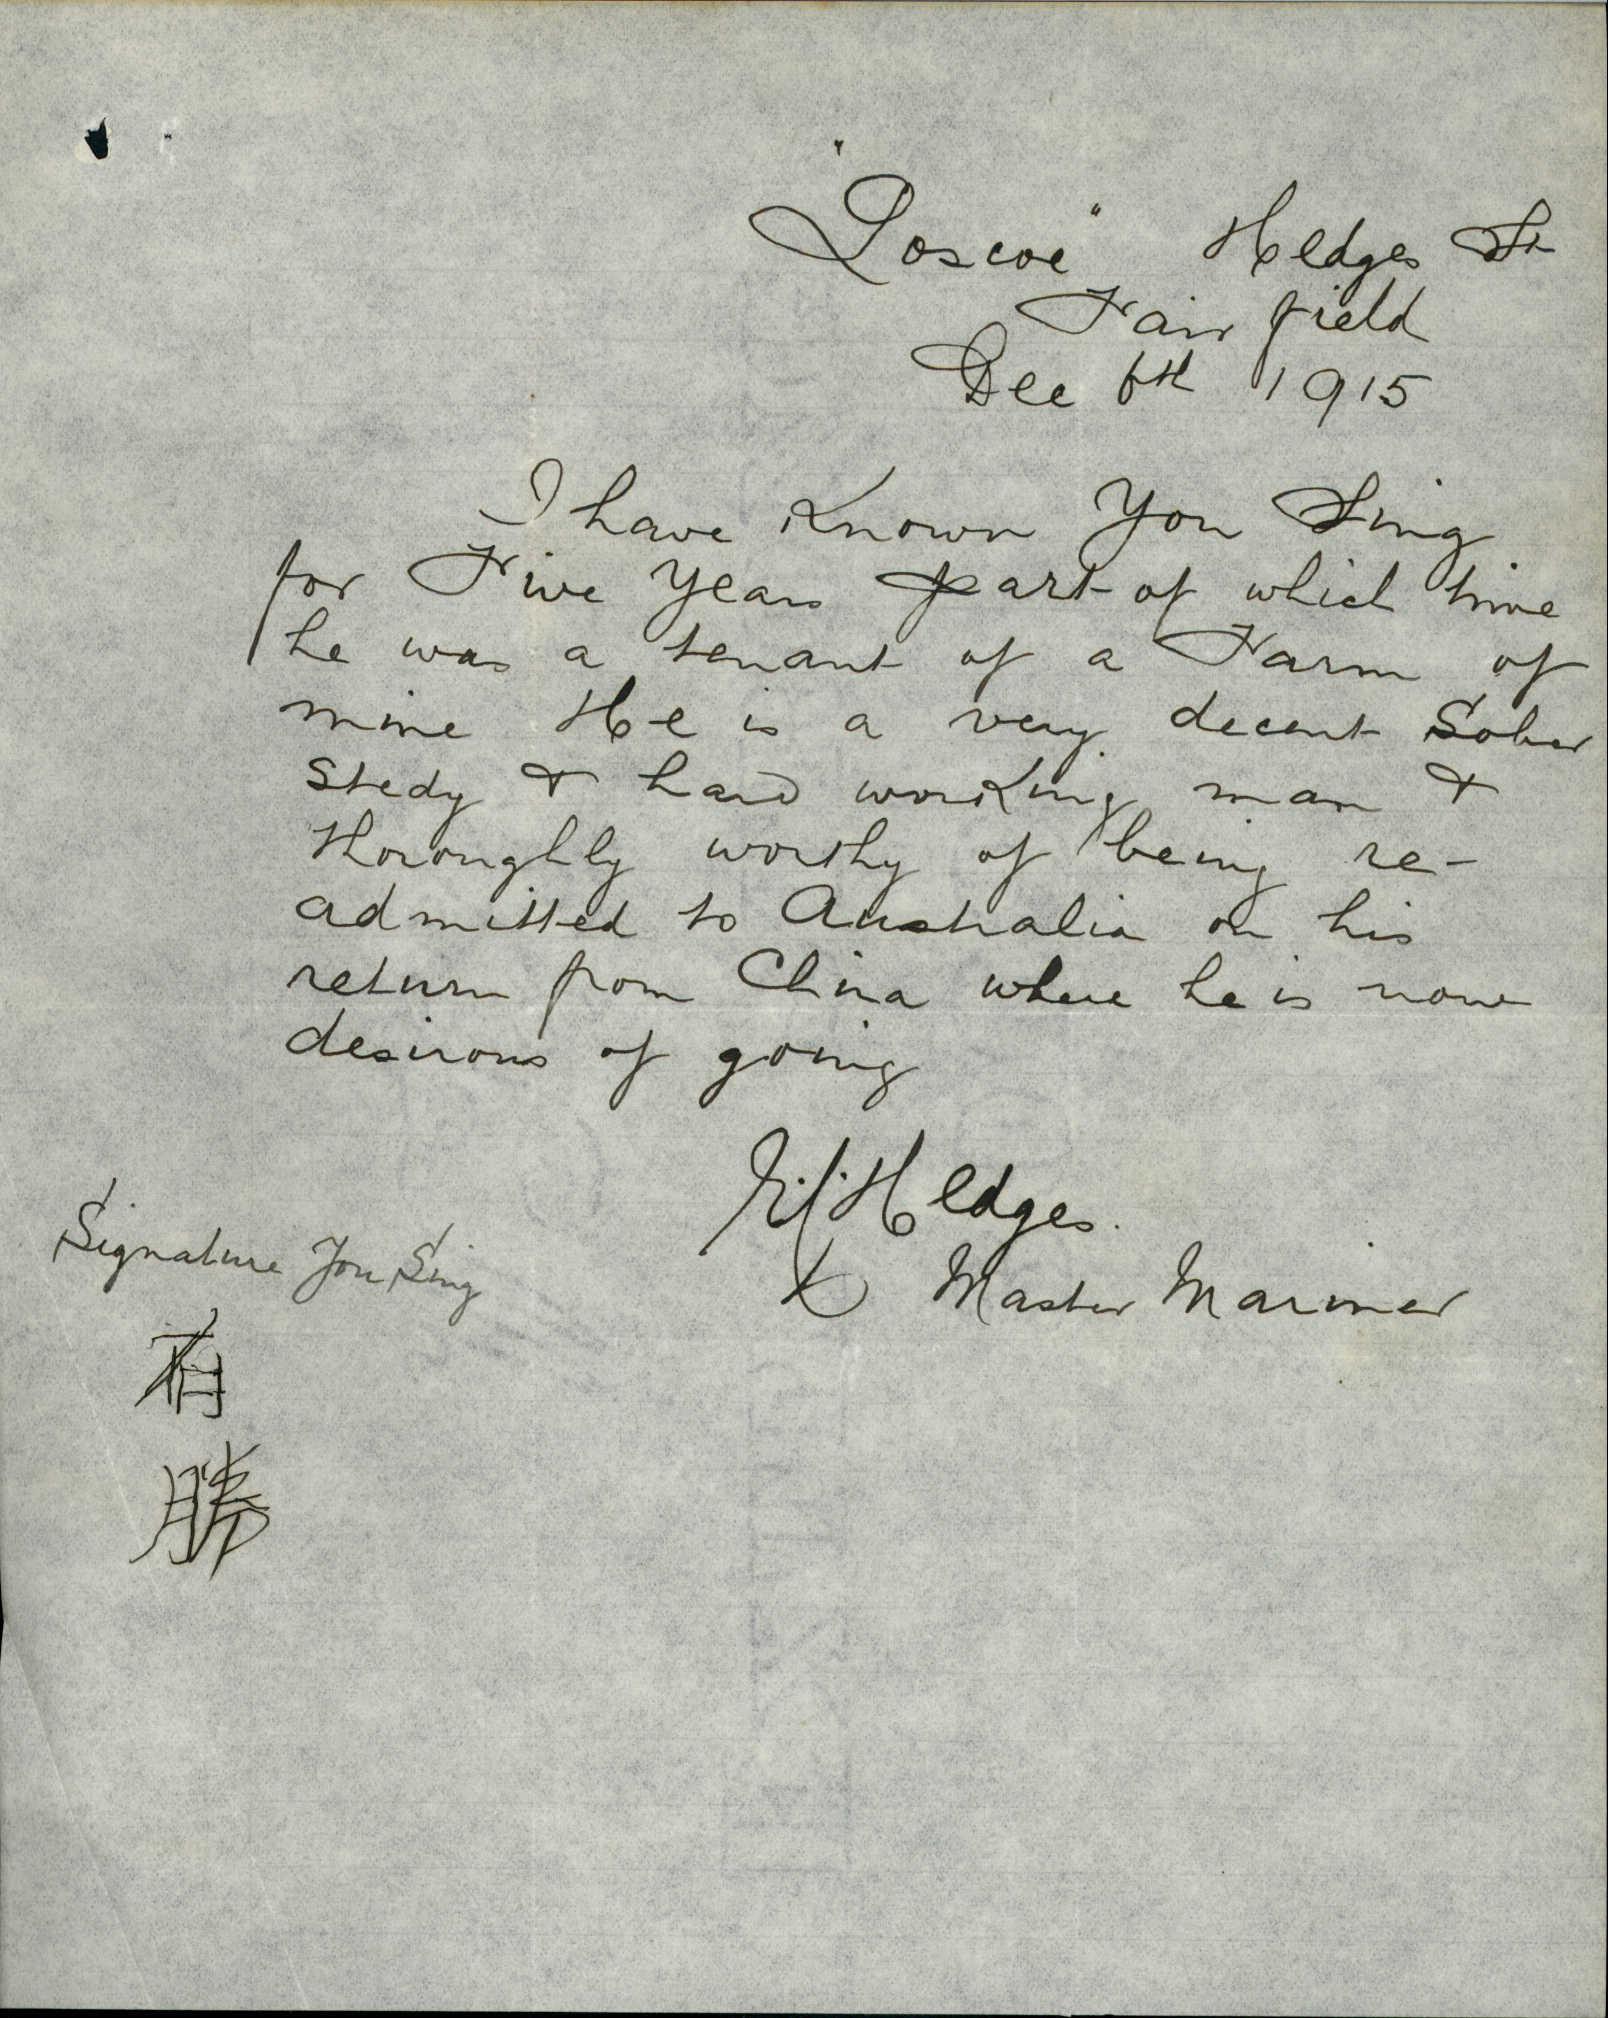 "Loscoe" Hedges St
Fairfield
Dec 6th 1915
I have Known You Sing
for Five Years part of which time
he was a tenant of a Farm of
mine He is a very decent Sober
Stedy & hard working man &
thoroughly worthy of being re-
admitted to Australia on his
return from China where he is now
desirous of going
Hedges.
Master Mariner
Signature You Sing
有
勝